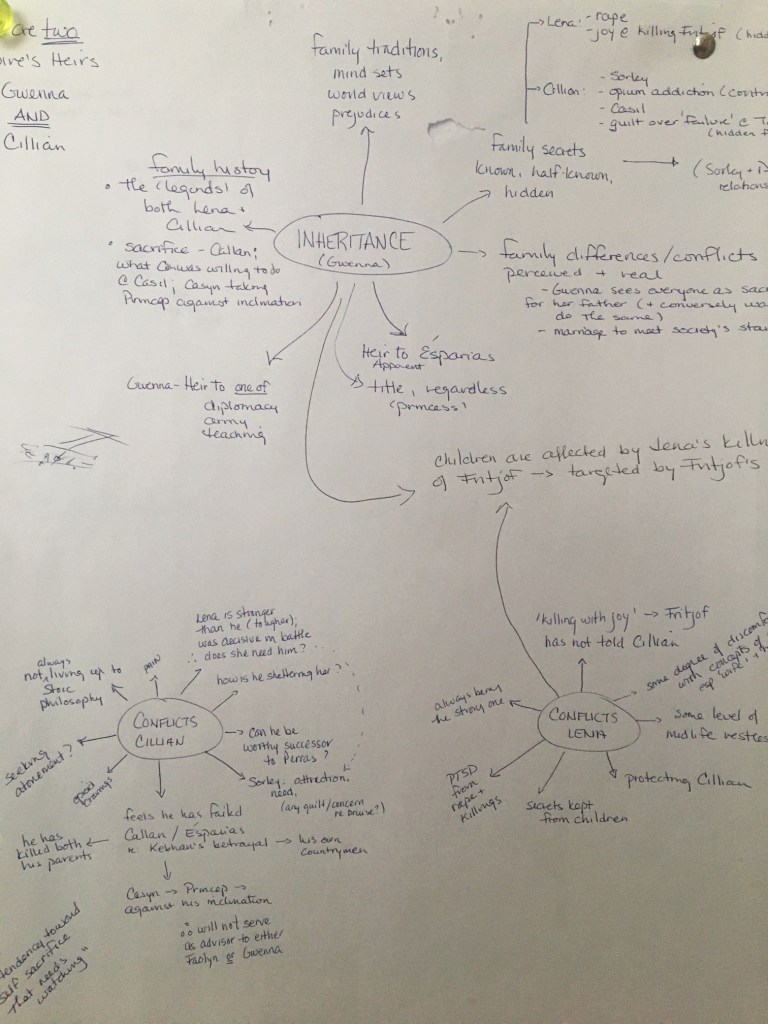 are two
Heirs
Gwenna
AND
Cillian
family traditions,
mind sets
world views
prejudices
Lena: - rape
- joy @ killing Fritjof
Cillian: - Sorley
- opium addiction
- Casil
- guilt over 'failure' @
(hidden
family secrets
known, half-known,
hidden
(Sorley +
family history
• the 'legends' of
both Lena +
Cillian
• sacrifice - Callan;
what Cenwas willing to do
@ Casil; Casyn taking
Princep against inclination
INHERITANCE
(Gwenna)
family differences/conflicts
perceived + real
- Gwenna sees everyone as
for her father (+ conversely
do the same)
- marriage to meet society's
Heir to Ésparias
Apparent
title, regardless
'princess'
Gwenna - Heir to one of
diplomacy
army
teaching
children are affected by Lena's
of Fritjof → targeted by Fritjof's
Lena is stronger
than he (tougher);
was decisive in battle
∴ does she need him?
how is he sheltering her?
always
not living up to
Stoic
philosophy
PAIN
CONFLICTS
CILLIAN
can he be
worthy successor
to Perras?
Sorley: attraction,
need,
(any guilt/concern
re Druise?)
seeking
atonement?
opioid
cravings
feels he has failed
Callan / Ésparias
re Kebhan's betrayal → his own
countrymen
he has
killed both
his parents
Casyn → Princep →
against his inclination
∴ will not serve
as advisor to either
Faolyn or Gwenna
tendency toward
self sacrifice
that needs
watching"
'killing with joy' → Fritjof
has not told Cillian
some degree of
with concepts of
esp 'wife'
always being
the strong one
CONFLICTS
LENA
some level of
midlife
protecting Cillian
PTSD
from
rape +
killings
secrets kept
from children